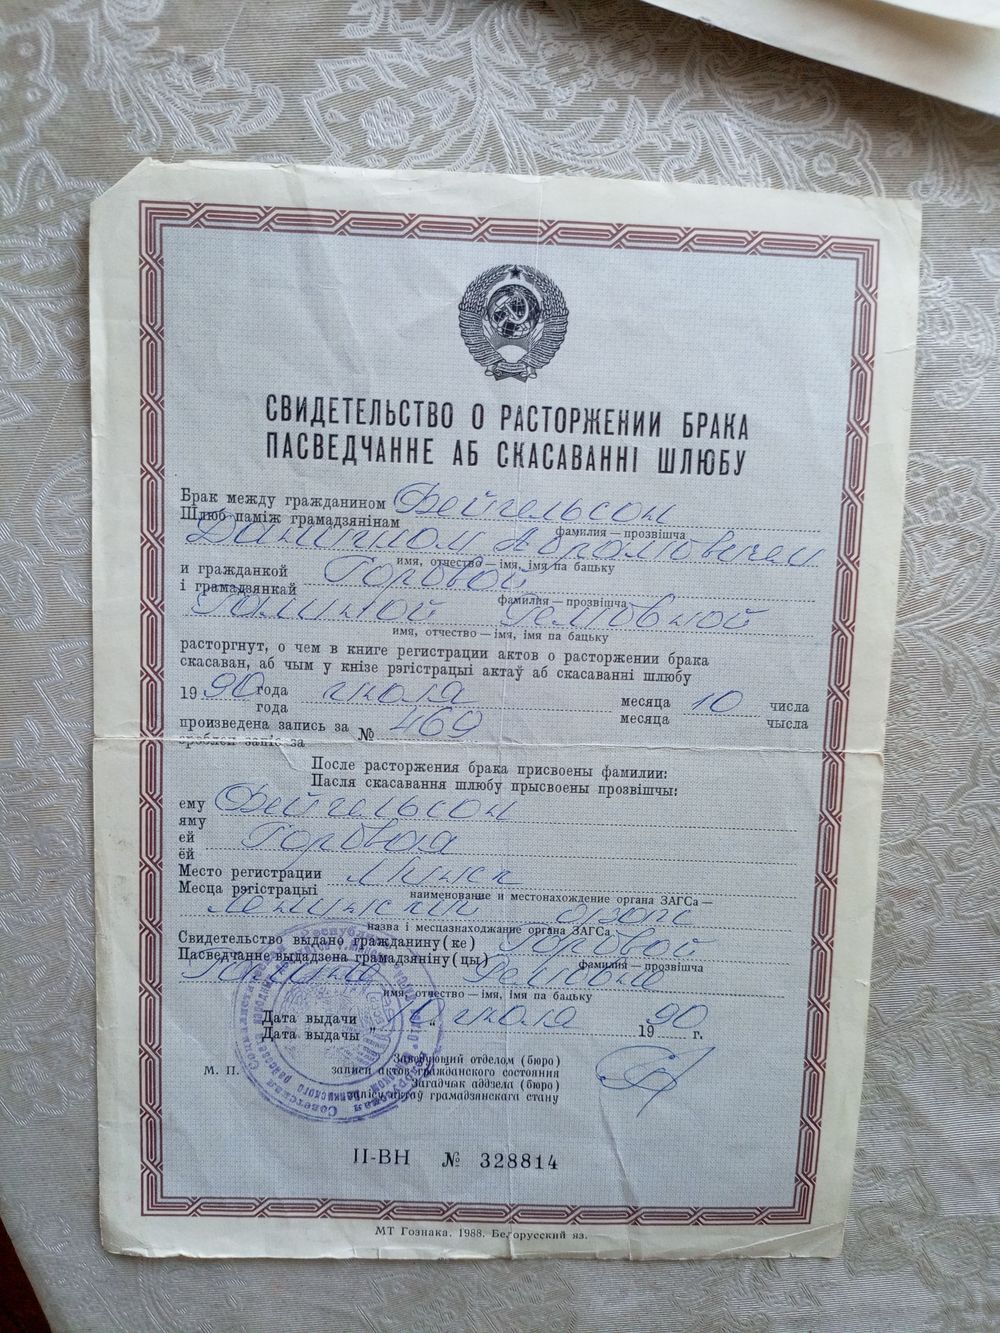 СВИДЕТЕЛЬСТВО О РАСТОРЖЕНИИ БРАКА
ПАСВЕДЧАННЕ АБ СКАСАВАННІ ШЛЮБУ
Брак между гражданином Фейгельсон
Шлюб паміж грамадзянінам
фамилия — прозвішча
Даниилом Абрамовичем
имя, отчество — імя, імя па бацьку
и гражданкой Горовой
і грамадзянкай
фамилия — прозвішча
Галиной
имя, отчество — імя, імя па бацьку
расторгнут, о чем в книге регистрации актов о расторжении брака
скасаван, аб чым у кнізе рэгістрацыі актаў аб скасаванні шлюбу
19 90 года июля месяца 10 числа
года месяца чысла
произведена запись за № 469
зроблен запіс за
После расторжения брака присвоены фамилии:
Пасля скасавання шлюбу прысвоены прозвішчы:
ему Фейгельсон
яму
ей Горовая
ёй
Место регистрации Минск
Месца рэгістрацыі
наименование и местонахождение органа ЗАГСа —
Ленинский
назва і месцазнаходжанне органа ЗАГСа
Свидетельство выдано гражданину(ке) Горовой
Пасведчанне выдадзена грамадзяніну(цы)
фамилия — прозвішча
Галине
имя, отчество — імя, імя па бацьку
Дата выдачи „ 10 “ июля 19 90 г.
Дата выдачы
Заведующий отделом (бюро)
М. П. записи актов гражданского состояния
Загадчык аддзела (бюро)
запісу актаў грамадзянскага стану
II-ВН № 328814
МТ Гознака. 1988. Белорусский яз.